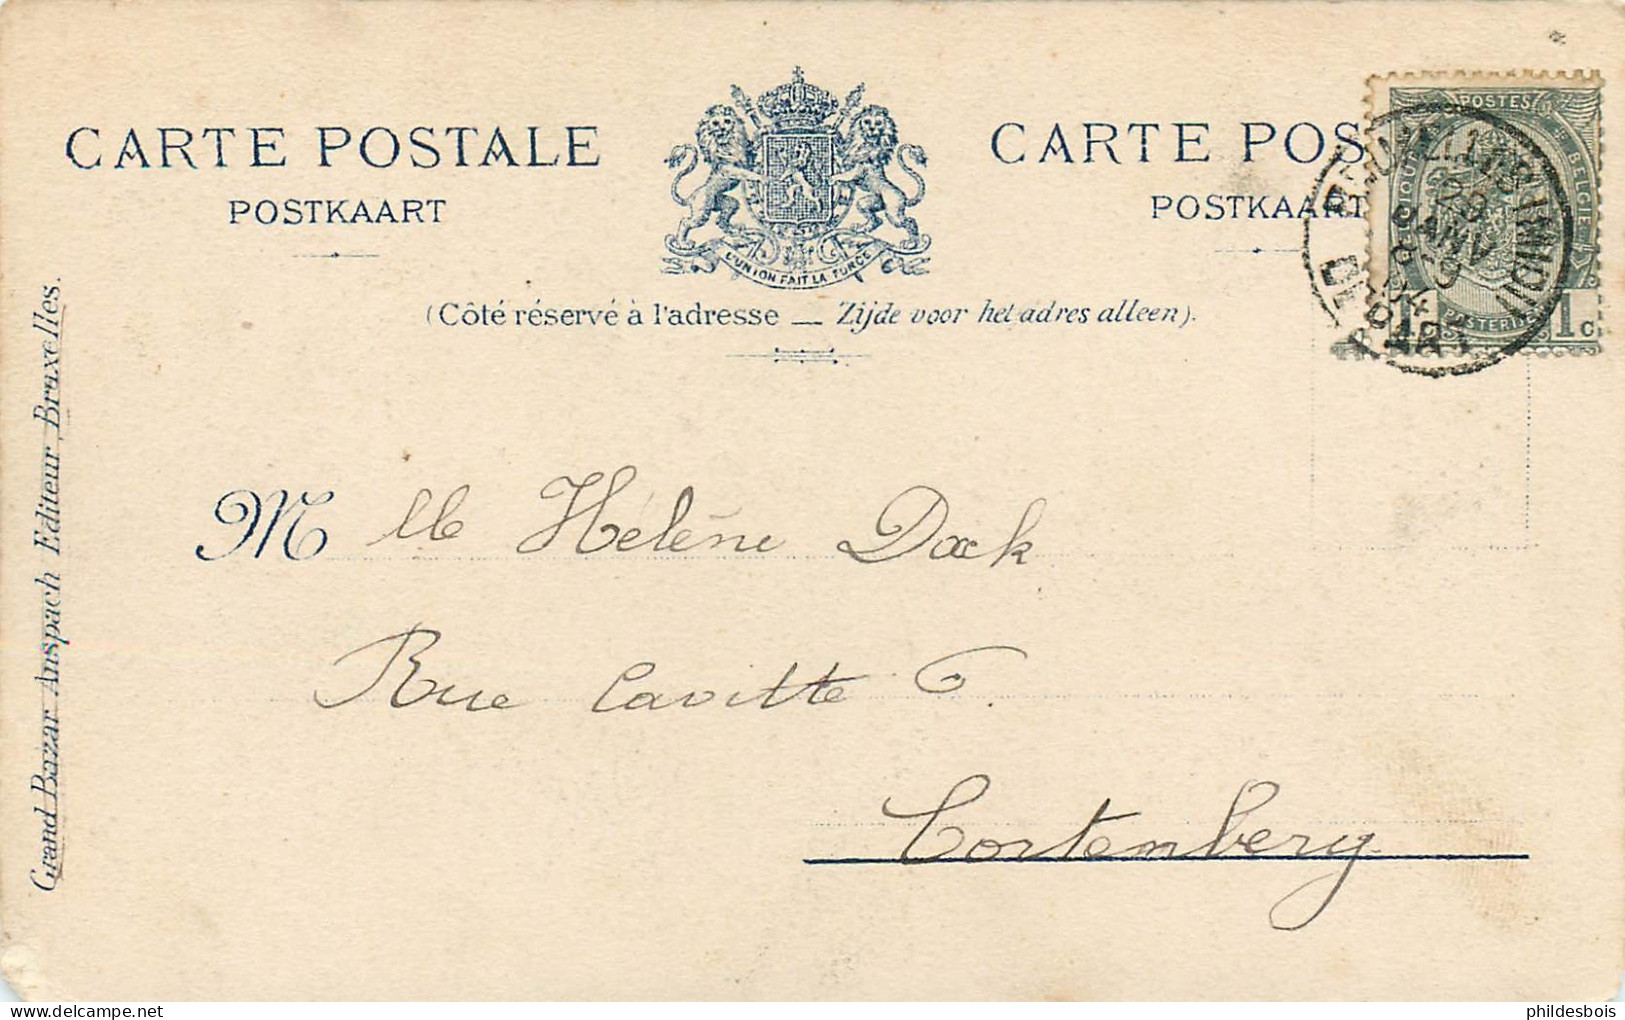 CARTE POSTALE
POSTKAART
L'UNION FAIT LA FORCE
CARTE POS
POSTKAART
(Côté réservé à l'adresse — Zijde voor het adres alleen).
POSTES
BELGIQUE BELGIE
POSTERIJEN
1 1c
BRUXELLES (MIDI)
29
JANV
04
DEPART
Grand Bazar Anspach Editeur, Bruxelles.
Mlle Hélène Dock
Rue
Cortenberg
phildesbois